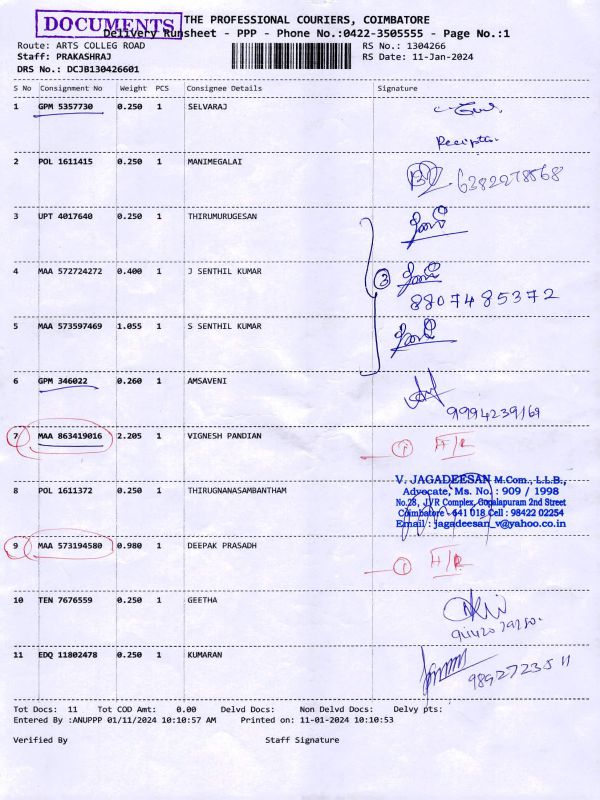 DOCUMENTS
THE PROFESSIONAL COURIERS, COIMBATORE
Delivery Runsheet - PPP - Phone No.:0422-3505555 - Page No.:1
Route: ARTS COLLEG ROAD RS No.: 1304266
Staff: PRAKASHRAJ RS Date: 11-Jan-2024
DRS No.: DCJB130426601
S No Consignment No Weight PCS Consignee Details Signature
1 GPM 5357730 0.250 1 SELVARAJ
2 POL 1611415 0.250 1 MANIMEGALAI 6382278568
3 UPT 4017640 0.250 1 THIRUMURUGESAN
4 MAA 572724272 0.400 1 J SENTHIL KUMAR 3
8807485372
5 MAA 573597469 1.055 1 S SENTHIL KUMAR
6 GPM 346022 0.260 1 AMSAVENI
9994239169
7 MAA 863419016 2.205 1 VIGNESH PANDIAN
V. JAGADEESAN M.Com., L.L.B.,
8 POL 1611372 0.250 1 THIRUGNANASAMBANTHAM Advocate, Ms. No. : 909 / 1998
No.28, JVR Complex, Gopalapuram 2nd Street
Coimbatore - 641 018 Cell : 98422 02254
Email : jagadeesan_v@yahoo.co.in
9 MAA 573194580 0.980 1 DEEPAK PRASADH
10 TEN 7676559 0.250 1 GEETHA
11 EDQ 11802478 0.250 1 KUMARAN
Tot Docs: 11 Tot COD Amt: 0.00 Delvd Docs: Non Delvd Docs: Delvy pts:
Entered By :ANUPPP 01/11/2024 10:10:57 AM Printed on: 11-01-2024 10:10:53
Verified By Staff Signature